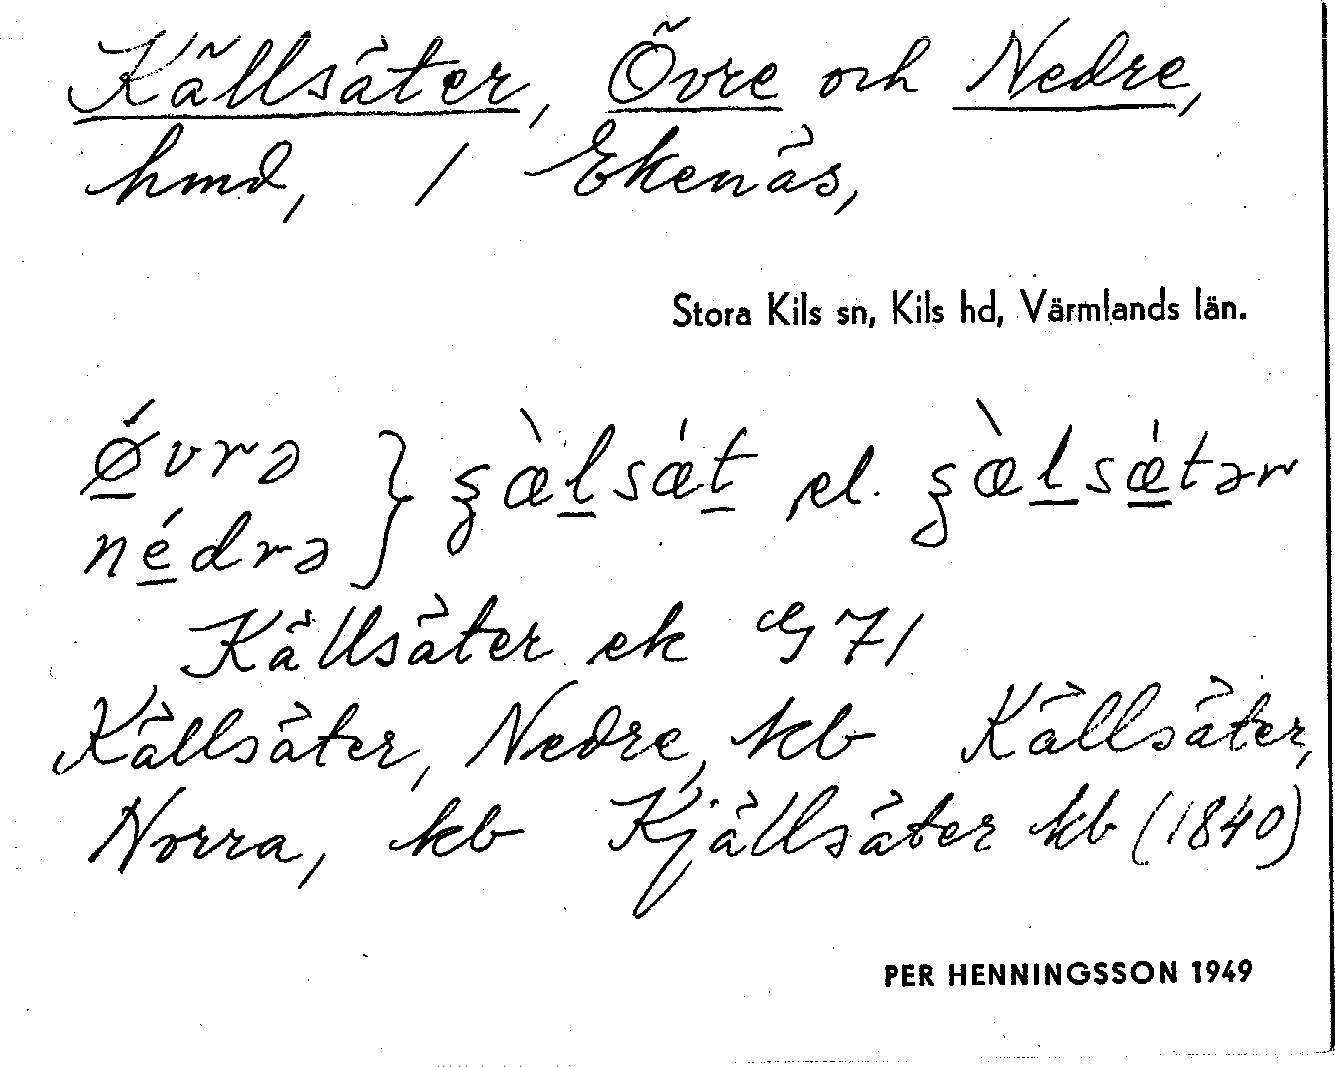 Källsäter, Övre och Nedre,
hmd, / Ekenäs,
Stora Kils sn, Kils hd, Värmlands län.
ǿvrə
nédrə } ʂæ̀lsǽt el. ʂæ̀lsǽtər
Källsäter ek G 71
Källsäter, Nedre, kb Källsäter,
Norra, kb Kjällsäter kb (1840)
PER HENNINGSSON 1949